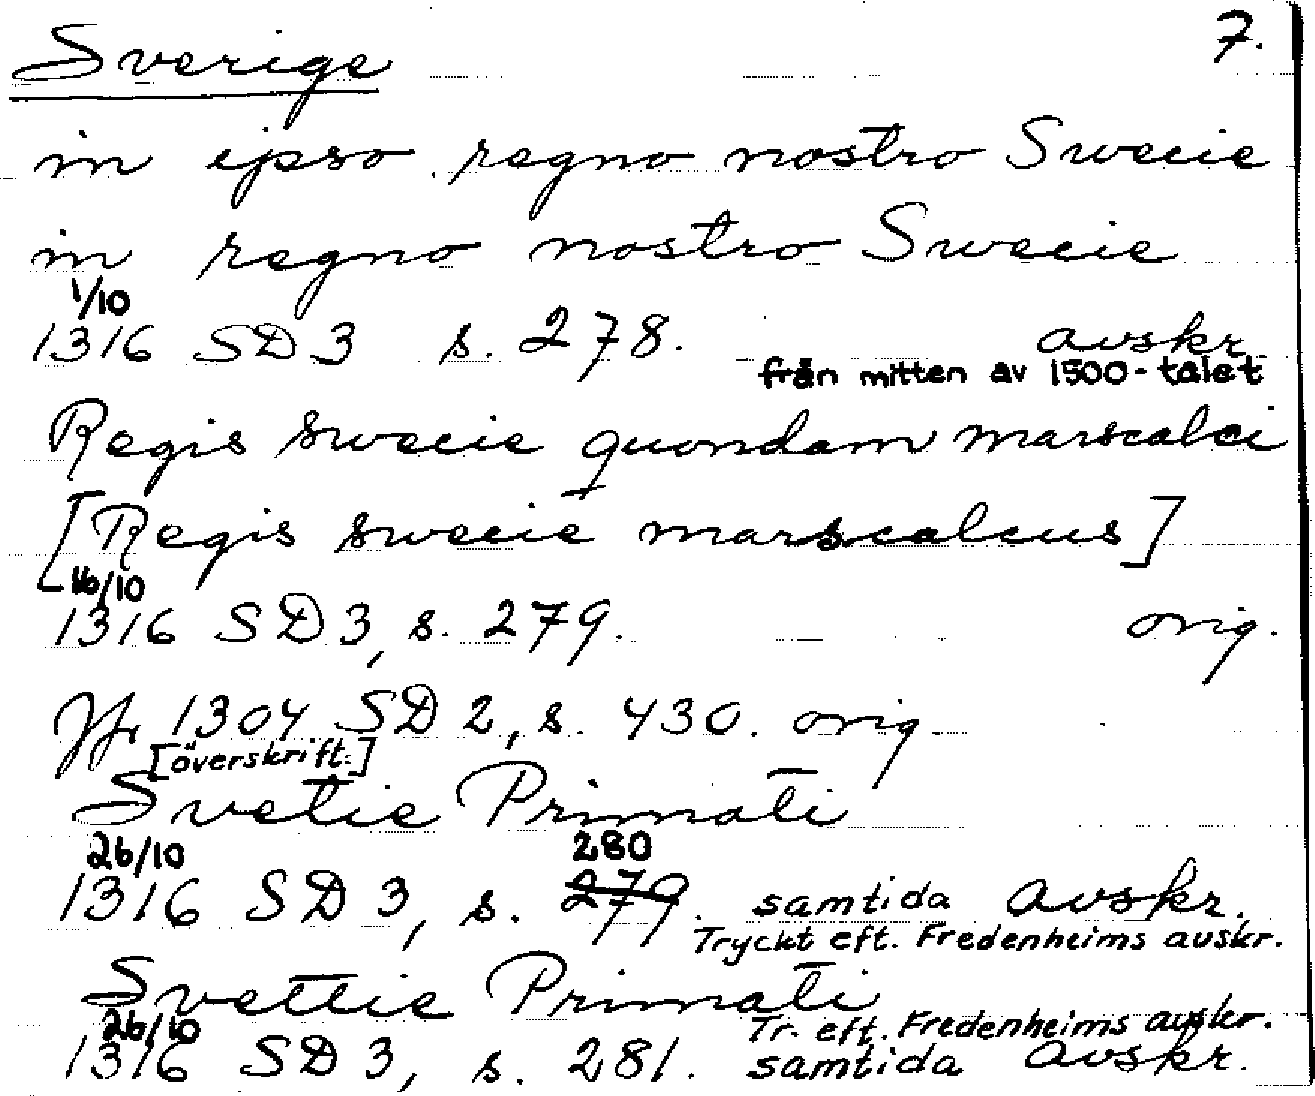 Sverige 7.
in ipso regno nostro Swecie
in regno nostro Swecie
1/10
1316 SD 3 s. 278. avskr.
från mitten av 1500-talet
Regis swecie quondam marscalci
[Regis swecie marscalcus]
16/10
1316 SD 3, s. 279. orig.
Jfr 1304 SD 2, s. 430. orig
[överskrift.]
Svetie Primati
26/10 280
1316 SD 3, s. 279. samtida avskr.
Tryckt eft. Fredenheims avskr.
Svettie Primati
26/10 Tr. eft. Fredenheims avskr.
1316 SD 3, s. 281. samtida avskr.